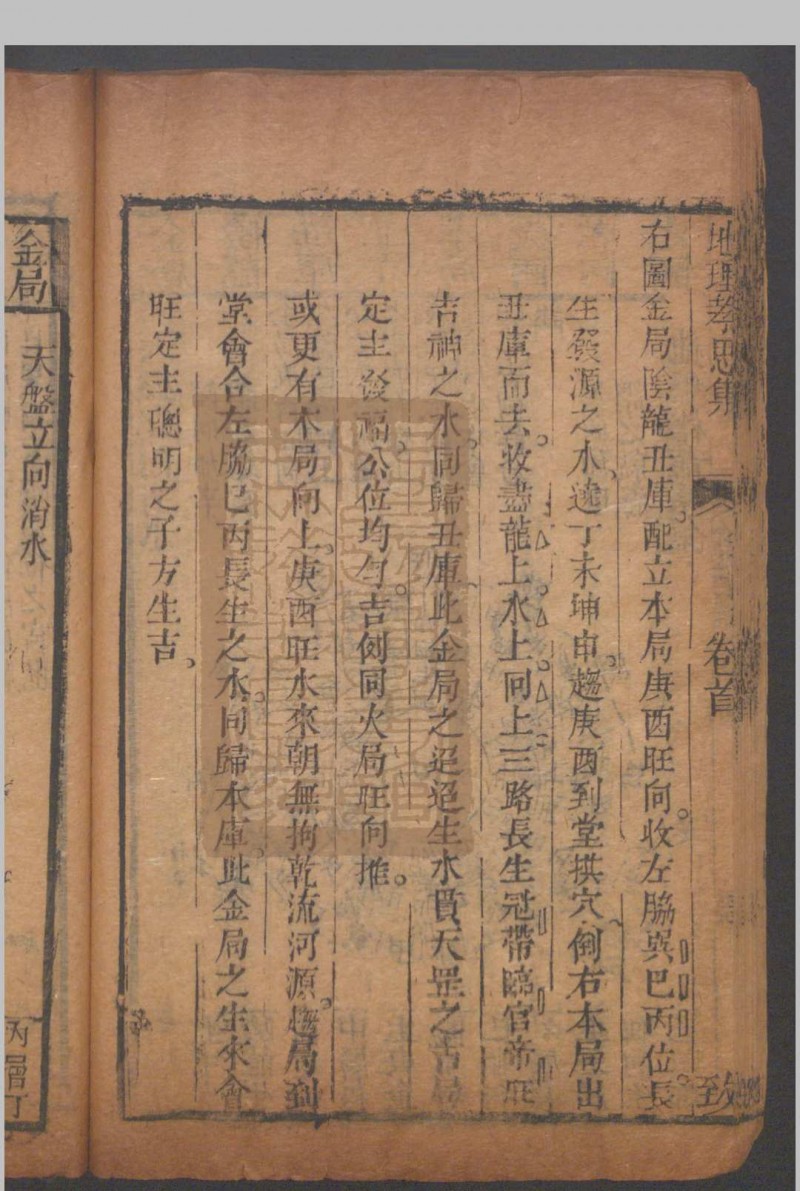 地理孝思集 卷首
右圖金局陰龍丑庫配立本局庚酉旺向收左脇巽巳丙位長
生發源之水遶丁未坤申趨庚酉到堂拱穴倒右本局出
丑庫而去收盡龍上水上向上三路長生冠帶臨官帝旺
吉神之水同歸丑庫此金局之迢迢生水貫天罡之吉局
定主發福公位均勻吉例同火局旺向推
或更有本局向上庚酉旺水來朝無拘乾流河源趨局到
堂會合左脇巳丙長生之水同歸本庫此金局之生來會
旺定主聰明之子方生吉
金局
天盤立向消水
丙層丁